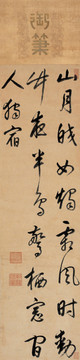 御筆
山月皎如燭霜風時動
竹夜半鳥驚棲窗間
人獨宿